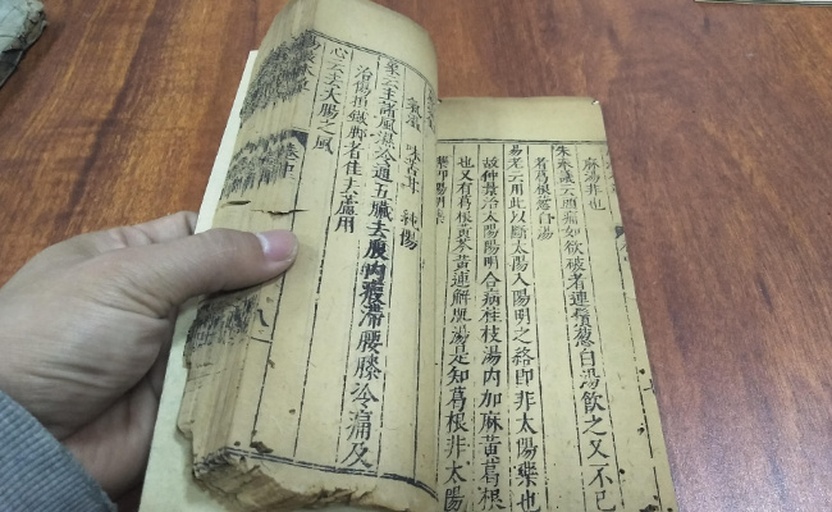 麻湯非也
朱奉議云頭痛如欲破者連鬚葱白湯飲之又不已
者葛根葱白湯
易老云用此以斷太陽入陽明之路即非太陽藥也
故仲景治太陽陽明合病桂枝湯内加麻黃葛根
也又有葛根黃芩黃連解肌湯是知葛根非太陽
藥即陽明藥
氣溫 味苦甘 純陽
象云主諸風濕冷通五臟去腹內癥滯腰膝冷痛及
治傷損鐵脚者佳去蘆用
心云去大腸之風
八